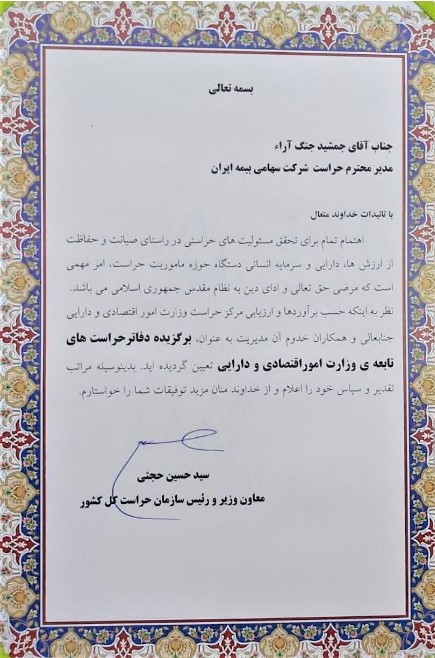 بسمه تعالی
جناب آقای جمشید جنگ آراء
مدیر محترم حراست شرکت سهامی بیمه ایران
با تائیدات خداوند متعال
اهتمام تمام برای تحقق مسئولیت های حراستی در راستای صیانت و حفاظت
از ارزش ها، دارایی و سرمایه انسانی دستگاه حوزه ماموریت حراست، امر مهمی
است که مرضی حق تعالی و ادای دین به نظام مقدس جمهوری اسلامی می باشد.
نظر به اینکه حسب برآوردها و ارزیابی مرکز حراست وزارت امور اقتصادی و دارایی
جنابعالی و همکاران خدوم آن مدیریت به عنوان، برگزیده دفاتر حراست های
تابعه ی وزارت اموراقتصادی و دارایی تعیین گردیده اید. بدینوسیله مراتب
تقدیر و سپاس خود را اعلام و از خداوند منان مزید توفیقات شما را خواستارم.
سید حسین حجتی
معاون وزیر و رئیس سازمان حراست کل کشور